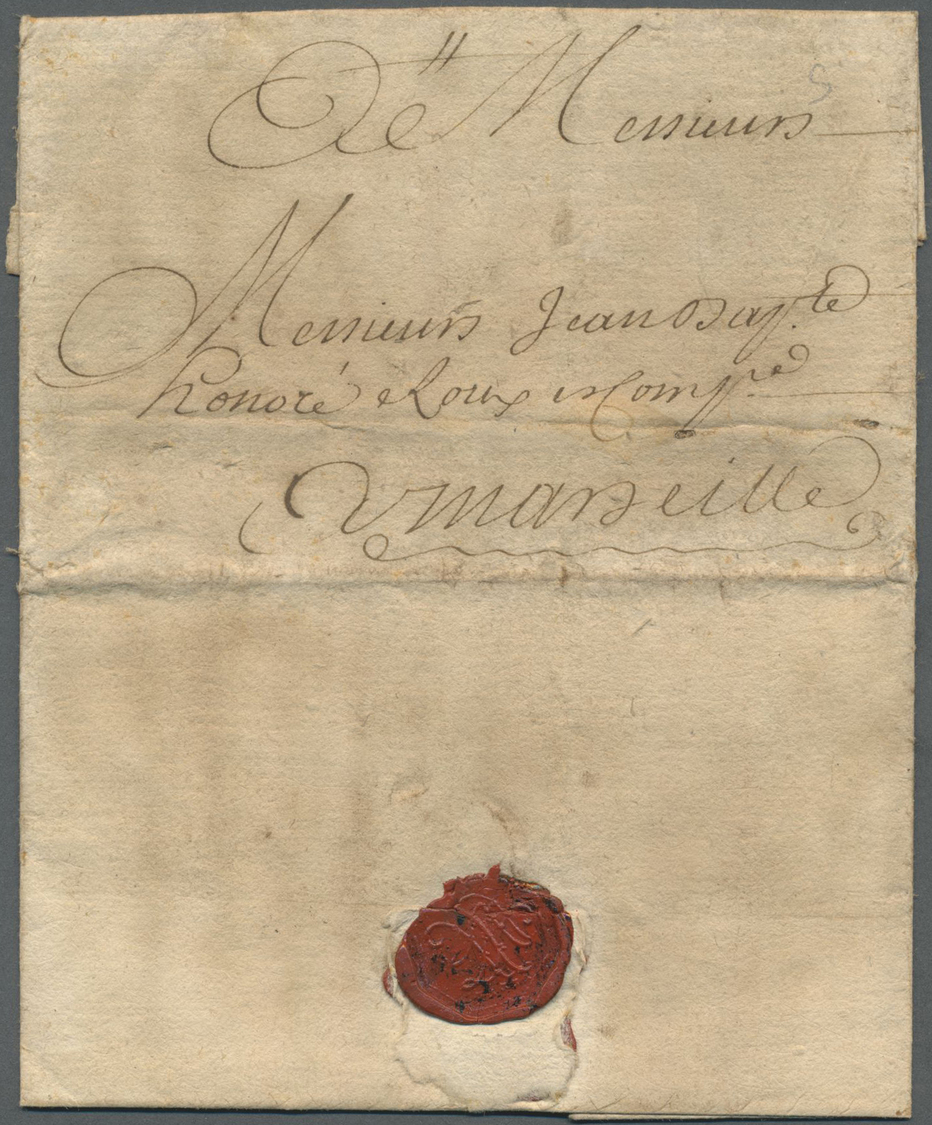 A Messieurs
Messieurs Jean Bap.te
honoré Roux et Comp.e
Marseille